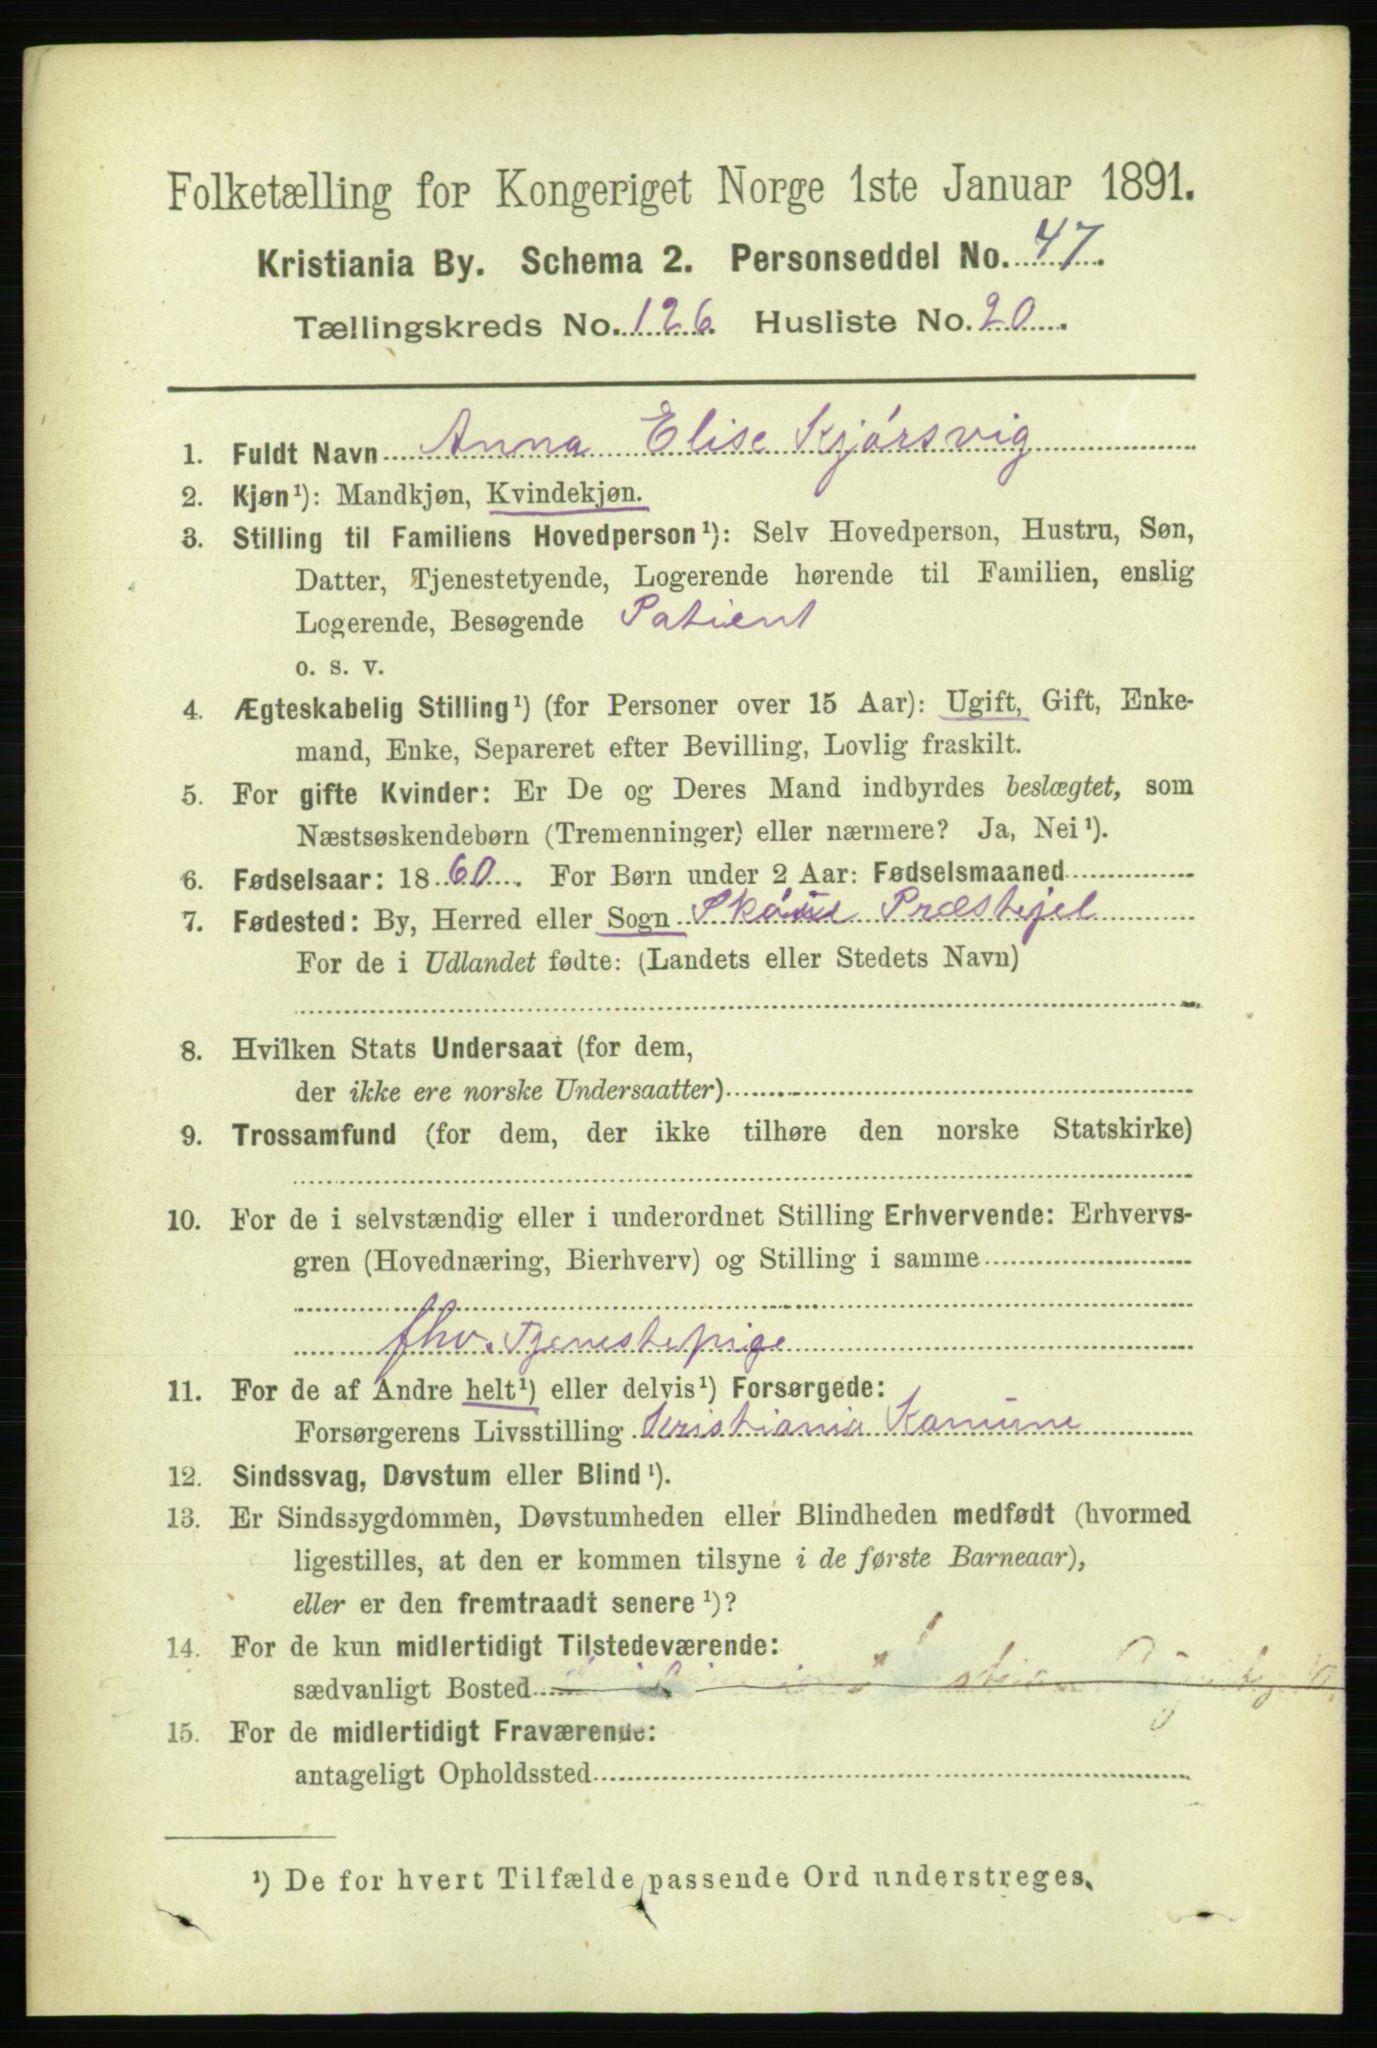 Folketælling for Kongeriget Norge 1ste Januar 1891.
Kristiania By. Schema 2. Personseddel No. 47.
Tællingskreds No. 126. Husliste No. 20.
1. Fuldt Navn Anna Elise Kjørsvig
2. Kjøn¹): Mandkjøn, Kvindekjøn.
3. Stilling til Familiens Hovedperson¹): Selv Hovedperson, Hustru, Søn,
Datter, Tjenestetyende, Logerende hørende til Familien, enslig
Logerende, Besøgende Patient
o. s. v.
4. Ægteskabelig Stilling¹) (for Personer over 15 Aar): Ugift, Gift, Enke-
mand, Enke, Separeret efter Bevilling, Lovlig fraskilt.
5. For gifte Kvinder: Er De og Deres Mand indbyrdes beslægtet, som
Næstsøskendebørn (Tremenninger) eller nærmere? Ja, Nei¹).
6. Fødselsaar: 1860. For Børn under 2 Aar: Fødselsmaaned
7. Fødested: By, Herred eller Sogn Præstejel
For de i Udlandet fødte: (Landets eller Stedets Navn)
8. Hvilken Stats Undersaat (for dem,
der ikke ere norske Undersaatter)
9. Trossamfund (for dem, der ikke tilhøre den norske Statskirke)
10. For de i selvstændig eller i underordnet Stilling Erhvervende: Erhvervs-
gren (Hovednæring, Bierhverv) og Stilling i samme
fhv. Tjenestepige
11. For de af Andre helt¹) eller delvis¹) Forsørgede:
Forsørgerens Livsstilling Kristiania Komune
12. Sindssvag, Døvstum eller Blind¹).
13. Er Sindssygdommen, Døvstumheden eller Blindheden medfødt (hvormed
ligestilles, at den er kommen tilsyne i de første Barneaar),
eller er den fremtraadt senere¹)?
14. For de kun midlertidigt Tilstedeværende:
sædvanligt Bosted
15. For de midlertidigt Fraværende:
antageligt Opholdssted
¹) De for hvert Tilfælde passende Ord understreges.